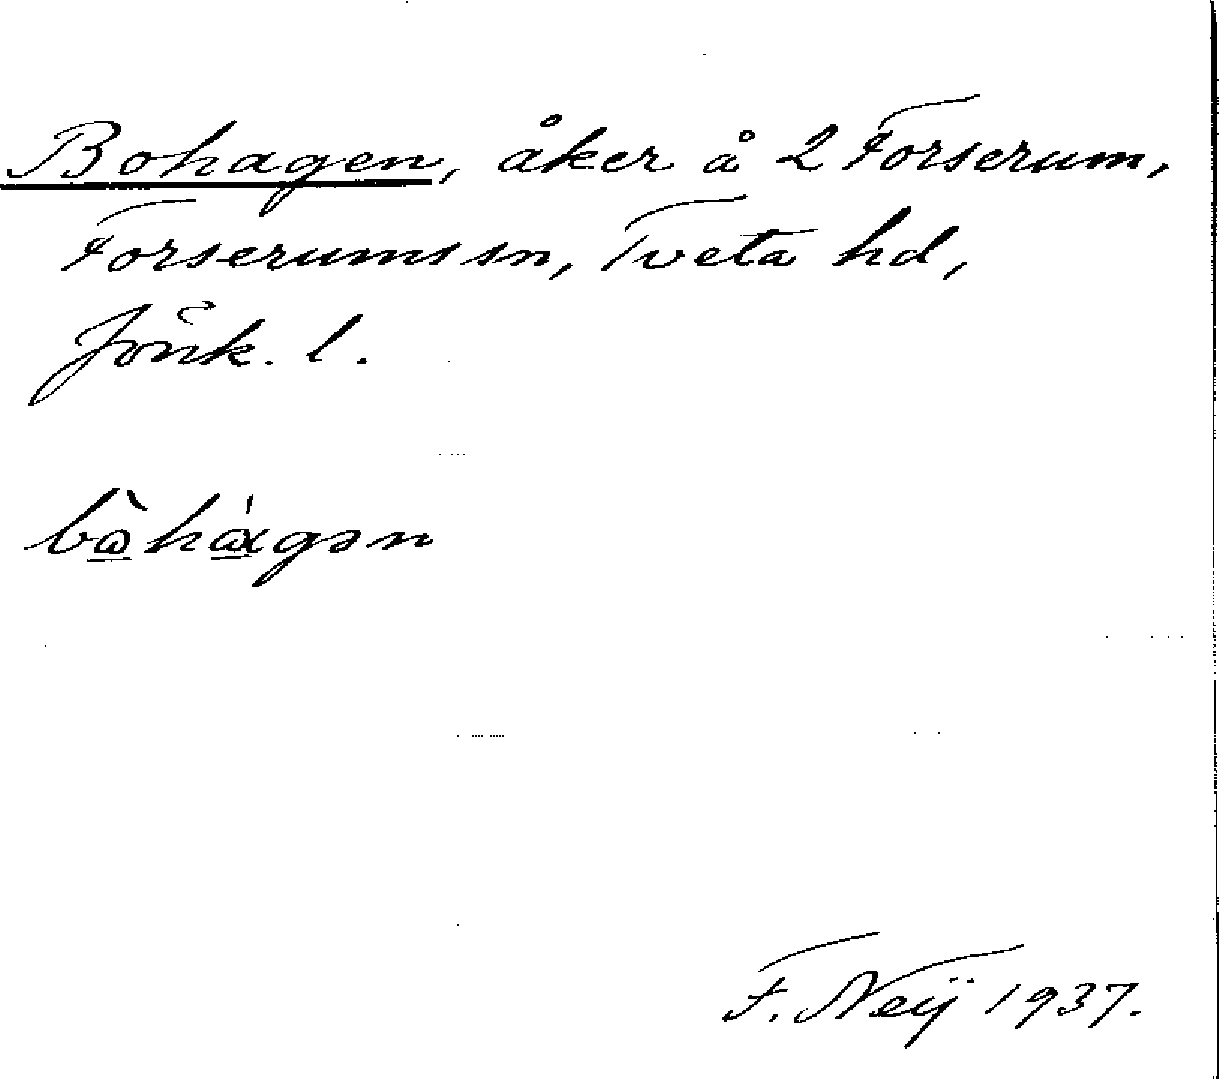 Bohagen, åker å 2 Forserum,
Forserums sn, Tveta hd,
Jönk. l.
bòhágən
F. Neij 1937.